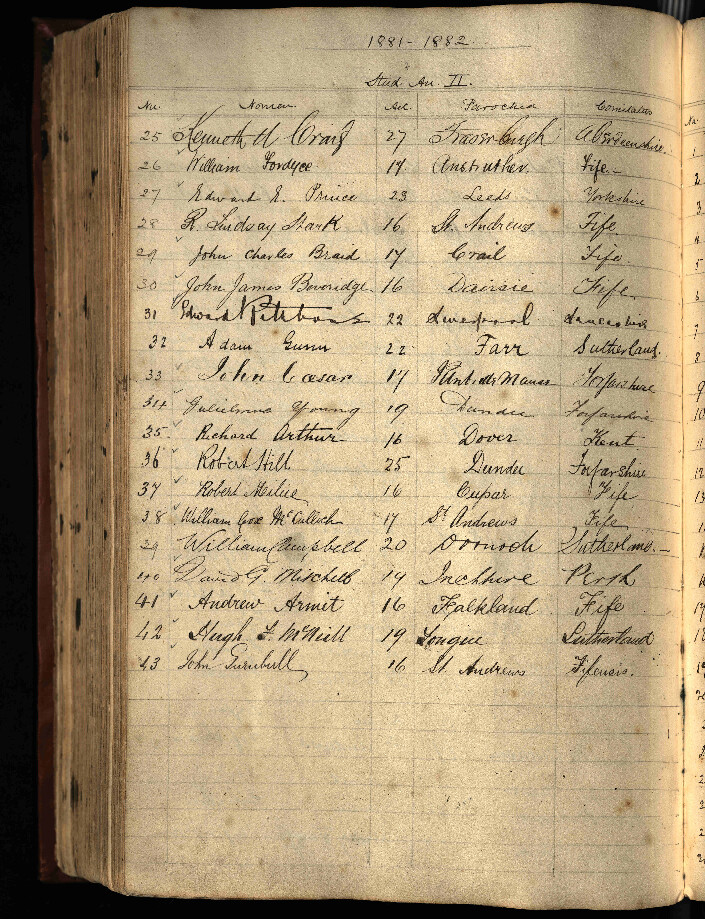 1881-1882
Stud. An. II.
No. Nomen. Aet. Parochia Comitatus
25 Kenneth M Craig 27 Fraserburgh Aberdeenshire.
26 William Fordyce 17 Anstruther. Fife.-
27 Edward E. Prince 23 Leeds Yorkshire
28 R. Lindsay Stark 16 St. Andrews Fife
29 John Charles Braid 17 Crail Fife
30 John James Beveridge. 16 Dairsie Fife.
31 Edward 22 Liverpool Lancashire
32 Adam Gunn 22 Farr Sutherland.
33 John Caesar 17 Forfarshire
34 Gulielmus Young 19 Dundee Forfarshire
35. Richard Arthur 16 Dover Kent
36 Robert Hill 25 Dundee Forfarshire
37 Robert Milne 16 Cupar Fife
38 William Coe McCulloch 17 St Andrews Fife
39 William Campbell 20 Dornoch Sutherland.-
40 David G. Mitchell 19 Inchture Perth
41 Andrew Armit 16 Falkland Fife
42 Hugh F. McNeill 19 Tongue Sutherland
43 John Turnbull 16 St. Andrews Fifensis.